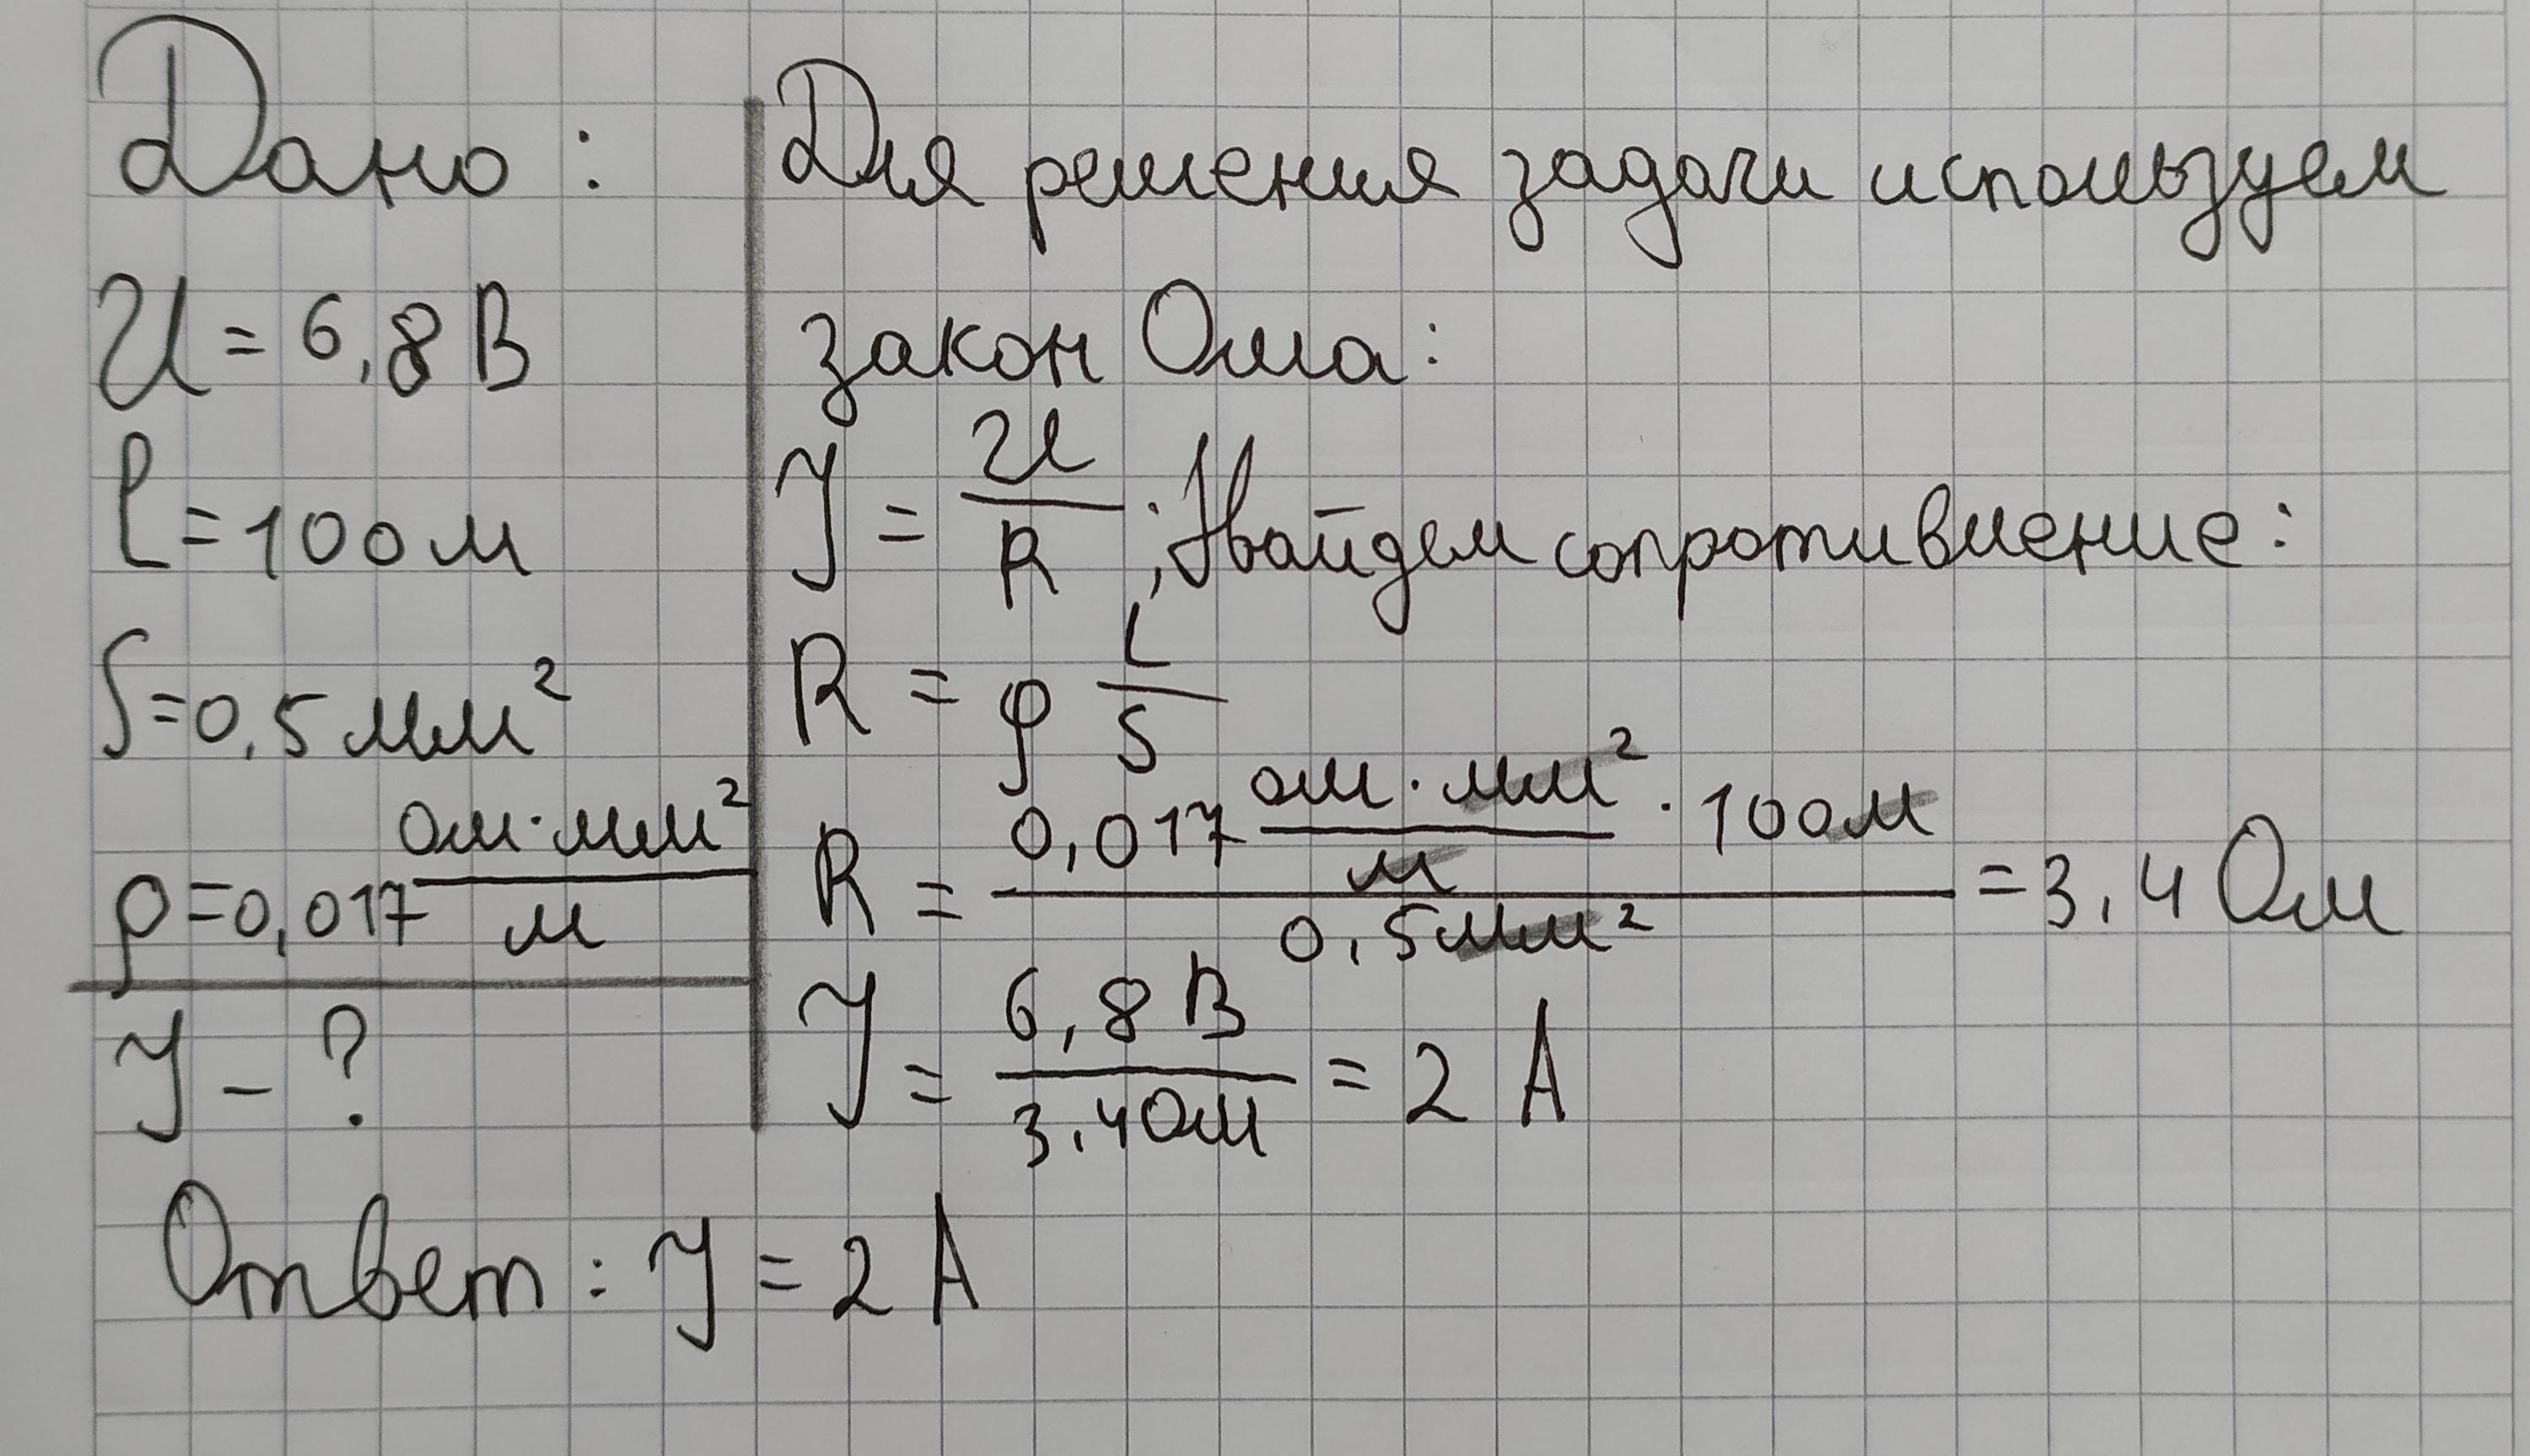 Дано:
U = 6,8 В
l = 100 м
S = 0,5 мм²
ρ = 0,017 ом·мм²/м
I - ?
Для решения задачи используем
закон Ома:
I = U/R ; Найдем сопротивление:
R = ρ L/S
R = 0,017 ом·мм²/м · 100м / 0,5мм² = 3,4 Ом
I = 6,8 В / 3,4 Ом = 2 А
Ответ: I = 2 А